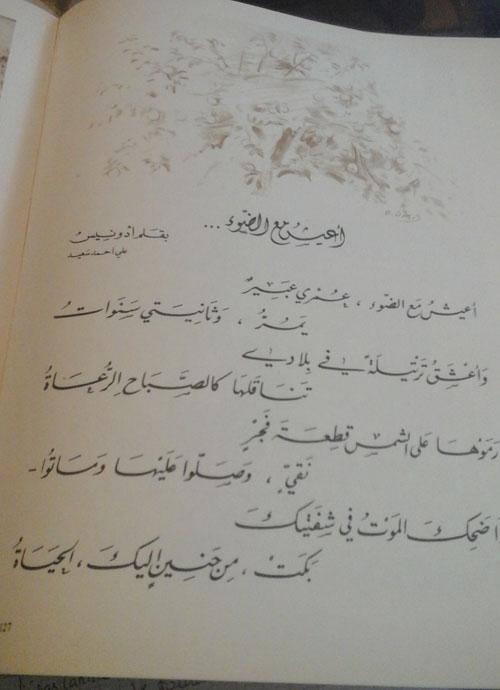 أعيش مع الضوء ...
بقلم أدونيس
علي احمد سعيد
أعيشُ مَعَ الضّوء ، عُمْري عَبيرٌ
يَمُرُّ ، وَثانيَتي سَنَواتُ
وَأعْشَقُ تَرْتيلَةً في بِلادي
تَناقَلَها كالصَّباحِ الرُّعاةُ
رَمَوْها عَلى الشمسِ قِطعَةَ فَجْرٍ
نَقيٍّ ، وَصَلّوا عَلَيْها وَماتوا -
إذا ضَحِكَ المَوْتُ في شِفَتَيْكَ
بَكَتْ ، مِن حَنينٍ إليكَ ، الحَياةُ
127